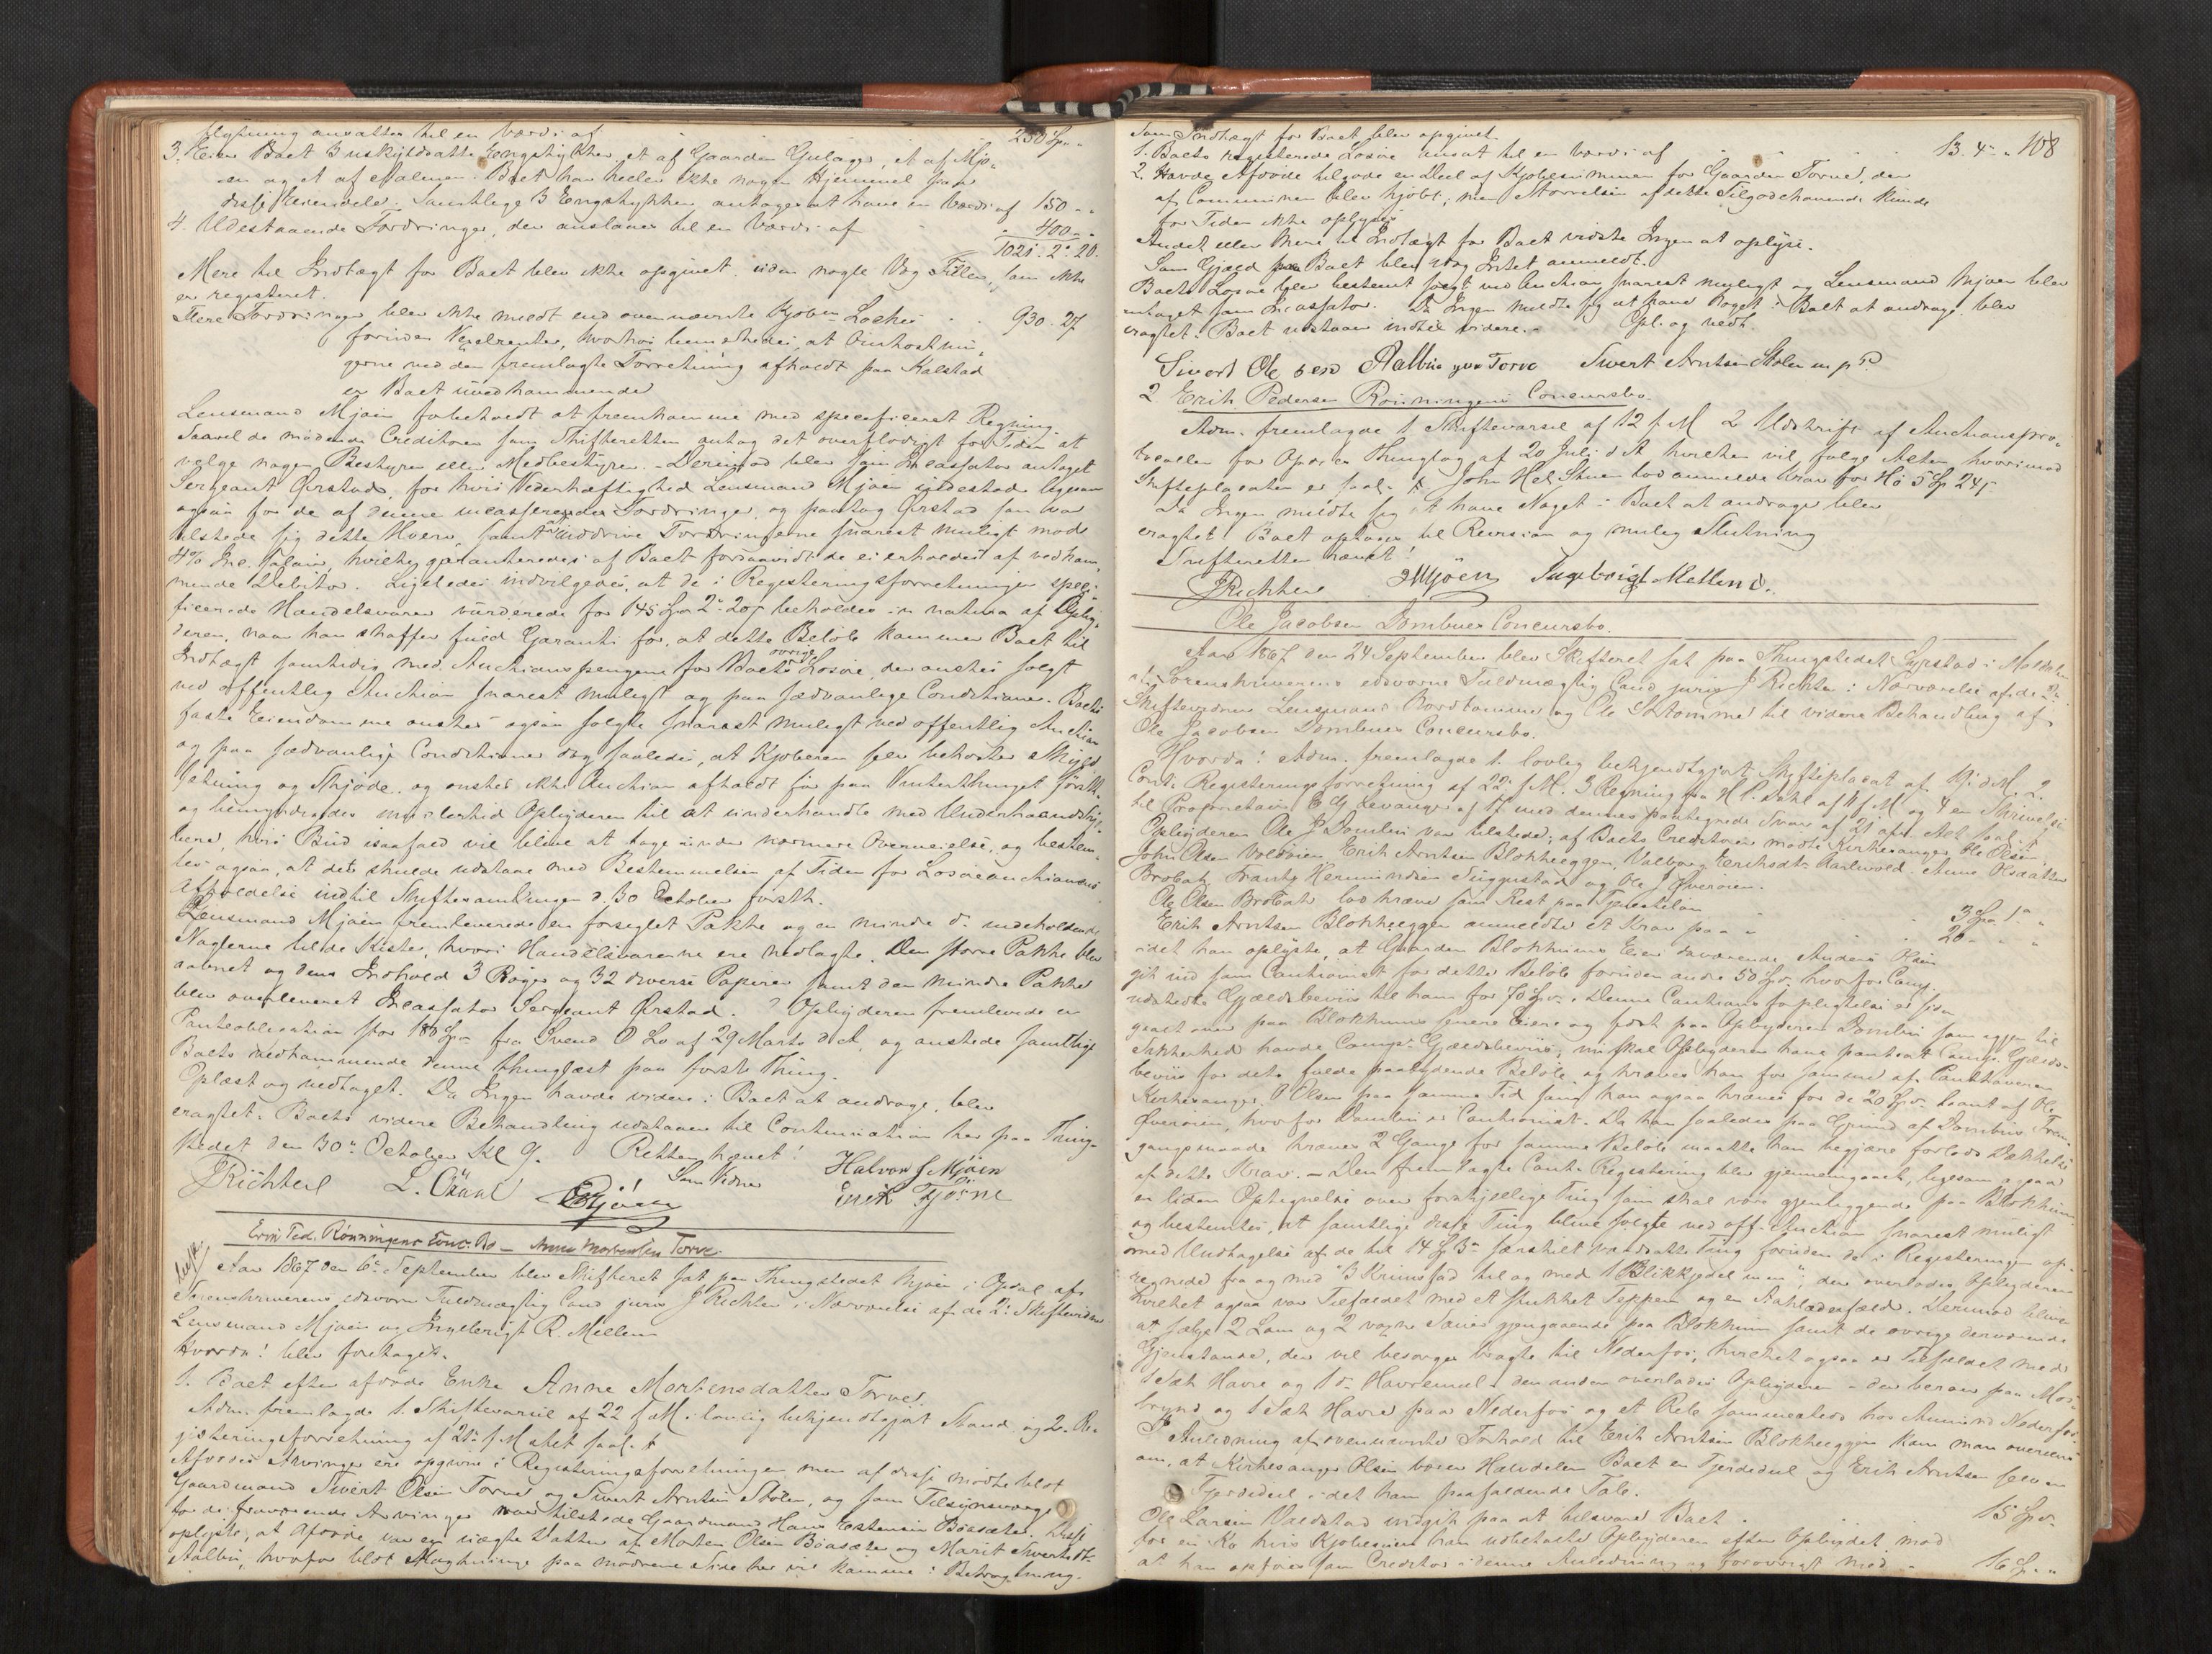 flytning ansattes til en Værdi af 250 Sp. "
3. Eier Boet 3 uskyldsatte Engstykker, et af Gaarden Gulager, et af Mjo-
en og et af Boet har heller ikke nogen Hjemmel paa
disse Eiendele. Samtlige 3 Engstykker antoges at have en Værdi af 150 - "
4. Udestaaende Fordringer, der anslaaes til en Værdi af 400 - "
1021. 2. 20.
Mere til Indtægt for Boet blev ikke opgivet, uden nogle Væg Tiller, som ikke
er registeret.
Flere Fordringer blev ikke meldt end ovennævnte Kjøbm. Lockes 930. 27
foruden Vexelrenter, hvorhos bemærkedes, at Omkostnin-
gerne ved den fremlagte Forretning afholdt paa Kalstad
er Boet uvedkommende
Lensmand Mjøen forbeholdt at fremkomme med specificeret Regning.
Saavel de mødende Creditorer som Skifteretten antog det overflødigt for Tiden at
vælge nogen Bestyrer eller Medbestyrer. - Derimod blev som Incassator antaget
Sergeant Ørstad, for hvis Vederhæftighed Lensmand Mjøen indestod ligesom
ogsaa for de af denne incasserende Fordringer, og paatog Ørstad som var
tilstede sig dette Hverv, samt at inddrive Fordringerne snarest muligt mod
4% Inc. Salair, hvilket garanteredes af Boet forsaavidt de ei erholdes af vedkom-
mende Debitor. Ligeledes indvilgedes, at de i Registeringsforretningen speci-
ficerede Handelsvarer vurderede for 145 Spd 2 " 20 s beholdes in natura af Opby-
deren, naar han skaffer fuld Garanti for, at dette Beløb kommer Boet til
Indtægt samtidig med Auctionspengene for Boets øvrige Løsøre, der ønskes solgt
ved offentlig Auction snarest muligt og paa sædvanlige Conditioner. Boets
faste Eiendomme ønskes ogsaa solgte snarest muligt ved offentlig Auction
og paa sædvanlige Conditioner dog saaledes, at Kjøberen selv bekoster Skyld-
sætning og Skjøde, og ønskes ikke Auction afholdt før paa Vinterthinget førstk.
og bemyndigedes imidlertid Opbyderen til at underhandle med Underhaandsby-
dere, hvis Bud isaafald vil blive at tage under nærmere Overveielse, og bestem-
tes ogsaa, at det skulde udstaae med Bestemmelsen af Tiden for Løsøreauctionens
Afholdelse indtil Skiftesamlingen d. 30 October førstk.
Lensmand Mjøen fremleverede en forseglet Pakke og en mindre do indeholdende
Nøglerne til de Kister, hvori Handelsvarerne ere nedlagte. Den større Pakke blev
aabnet og dens Indhold 3 Bøger og 32 diverse Papirer samt den mindre Pakke
blev overleveret Incassator Sergeant Ørstad. Opbyderen fremleverede en
Panteobligation stor 180 Spd. fra Svend O Lo af 29 Marts d. A. og ønskede samtlige
Boets vedkommende denne thinglæst paa første Thing.
Oplæst og vedtaget. Da Ingen havde videre i Boet at andrage, blev
eragtet: Boets videre Behandling udstaaer til Continuation her paa Thing-
stedet den 30te October Kl 9. Retten hævet!
JRichter Som Vidner Halvor J Mjøen
Erik Fjøsne
Erik Ped. Rønningens Conc. Bo - Anne Mortensdtr Torve.
Aar 1867 den 6te September blev Skifteret sat paa Thingstedet Mjøen i Opdal af
Sorenskriverens edsvorne Fuldmægtig Cand. juris J Richter i Nærværelse af de 2de Skiftevidner
Lensmand Mjøen og Ingebrigt R. Mellem
Hvorda! blev foretaget.
1. Boet efter afdøde Enke Anne Mortensdatter Torve.
Adm. fremlagde 1. Skiftevarsel af 22 f. M. i lovlig bekjendtgjort Stand og 2. Re-
gisteringsforretning af 21de f M Actet saal. #
Afdødes Arvinger ere opgivne i Registeringsforretningen men af disse mødte blot
Gaardmand Sivert Olsen Torve og Sivert Arntsen Stølen, og som Tilsynsværge
for de fraværende Arvinger var tilstede Gaardmand Hans Estensen Bøasæter. Disse
oplyste, at Afdøde var en uægte Datter af Morten Olsen Bøasæter og Marit Sivertsdtr
Aalbu, hvorfor blot Slægtninge paa mødrene Side her vil komme i Betragtning.
Som Indtægt for Boet blev opgivet.
1. Boets registerede Løsøre ansat til en Værdi af 13. 4 - " 108
2. Havde Afdøde tilgode en Deel af Kjøbesummen for Gaarden Torve, der
af Communen blev kjøbt; men Størrelsen af dette Tilgodehavende kunde
for Tiden ikke oplyses.
Andet eller Mere til Indtægt for Boet vidste Ingen at oplyse.
Som Gjæld paa Boet blev idag Intet anmeldt.
Boets Løsøre blev bestemt solgt ved Auction snarest muligt og Lensmand Mjøen blev
antaget som Incassator. Da Ingen meldte sig at have Noget i Boet at andrage, blev
eragtet: Boet udstaaer indtil videre. - Opl. og vedt.
Sivert Ole sen Aalbu Torve Sivert Arntsen Stølen m p P
2 Erik Pedersen Rønningens Concursbo.
Adm. fremlagde 1. Skiftevarsel af 12 f. M 2 Udskrift af Auctionspro-
tocollen for Opdals Thinglag af 20 Juli d A hvilken vil følge Acten, hvorimod
Skifteplacaten er saal. # John Hel. Stuen lod anmelde Krav for Hø 5 Sp 24 s
Da Ingen meldte sig at have Noget i Boet at andrage blev
eragtet: Boet optages til Revision og mulig Slutning
Skifteretten hævet!
JRichter Mjöen Ingebrigt Mellem.
Ole Jacobsen Dombues Concursbo.
Aar 1867 den 24 September blev Skifteret sat paa Thingstedet Syrstad i Meldalen
af Sorenskriverens edsvorne Fuldmægtig Cand. juris J Richter i Nærværelse af de 2de
Skiftevidner Lensmand og Ole til videre Behandling af
Ole Jacobsen Dombues Concursbo.
Hvorda! Adm. fremlagde 1. lovlig bekjendtgjort Skifteplacat af d. M. 2.
Cont. Registeringsforretning af 22 f. M. 3 Regning fra H P. Dahl af f M og 4 en Skrivelse
til Proprietair Levanger af 17 med dennes paategnede Svar af 21 Act saal. #
Opbyderen Ole J Dombu var tilstede; af Boets Creditorer mødte Kirkesanger Ole Olsen,
John Olsen Erik Arntsen Blokheggen, Valborg Eriksdtr Anne Olsdatter
og Ole J Øverøien.
Ole Olsen lod kræve som Rest paa 3 Spd. 1 " "
Erik Arntsen Blokheggen anmeldte et Krav paa 20 - " "
idet han oplyste, at Gaarden Blokhums Eier daværende Anders Olsen
gik ind som Cautionist for dette Beløb foruden andre 50 Spd. hvorfor Comp.
udstedte Gjældsbevis til ham for 70 Spd. Denne Cautionsforpligtelse er siden
gaaet over paa Blokhums senere Eiere og sidst paa Opbyderen Dombu som
Sikkerhed havde Comps. Gjældsbevis; nu skal Opbyderen have pantsat Comps. Gjælds-
bevis for dets fulde paalydende Beløb, og kræves han for samme af Panthaveren
Kirkesanger O Olsen paa samme Tid som han ogsaa kræves for de 20 Spd. laant af Ole
Øverøien, hvorfor Dombu er Cautionist. Da han saaledes paa Grund af Dombus Frem-
gangsmaade kræves 2 Gange for samme Beløb maatte han begjære forlods Dækkelse
af dette Krav. - Den fremlagte Cont. Registering blev gjennemgaaet, ligesom ogsaa
en liden Optegnelse over forskjellige Ting som skal være gjenliggende paa Blokhum
og bestemtes, at samtlige disse Ting blive solgte ved off. Auction snarest muligt
med Undtagelse af de til 14 Sp 3 " særskilt værdsatte Ting foruden de i Registeringen op-
regnede fra og med "3 til og med 1 Blikkjedel", der overlodes Opbyderen
hvilket ogsaa var Tilfældet med et Teppe og en Derimod blive
at sælge 2 Lam og 2 Sauer gjengaaende paa Blokhum samt de øvrige derværende
Gjenstande, der vil besørges bragte til Nederfos, hvilket ogsaa er Tilfældet med
1 Sæk Havre og 1 do Havremel, den anden overlades Opbyderen - der beroer paa Mos-
brynd og 1 Sæk Havre paa Nederfos og et Reb sammesteds hos Amund Nederfos
I Anledning af ovennævnte Forhold til Erik Arntsen Blokheggen kom man overeens
om, at Kirkesanger Olsen bærer Halvdelen Boet en Fjerdedeel og Erik Arntsen selv en
Fjerdedeel i det ham paafaldende Tab.
Ole Larsen indgik paa at tilsvare Boet 15 Spd.
for en Ko hvis Kjøbesum han udbetalte Opbyderen efter Opbudet mod
at han opføres som Creditor i denne Anledning og forøvrigt med - 16 Sp. "